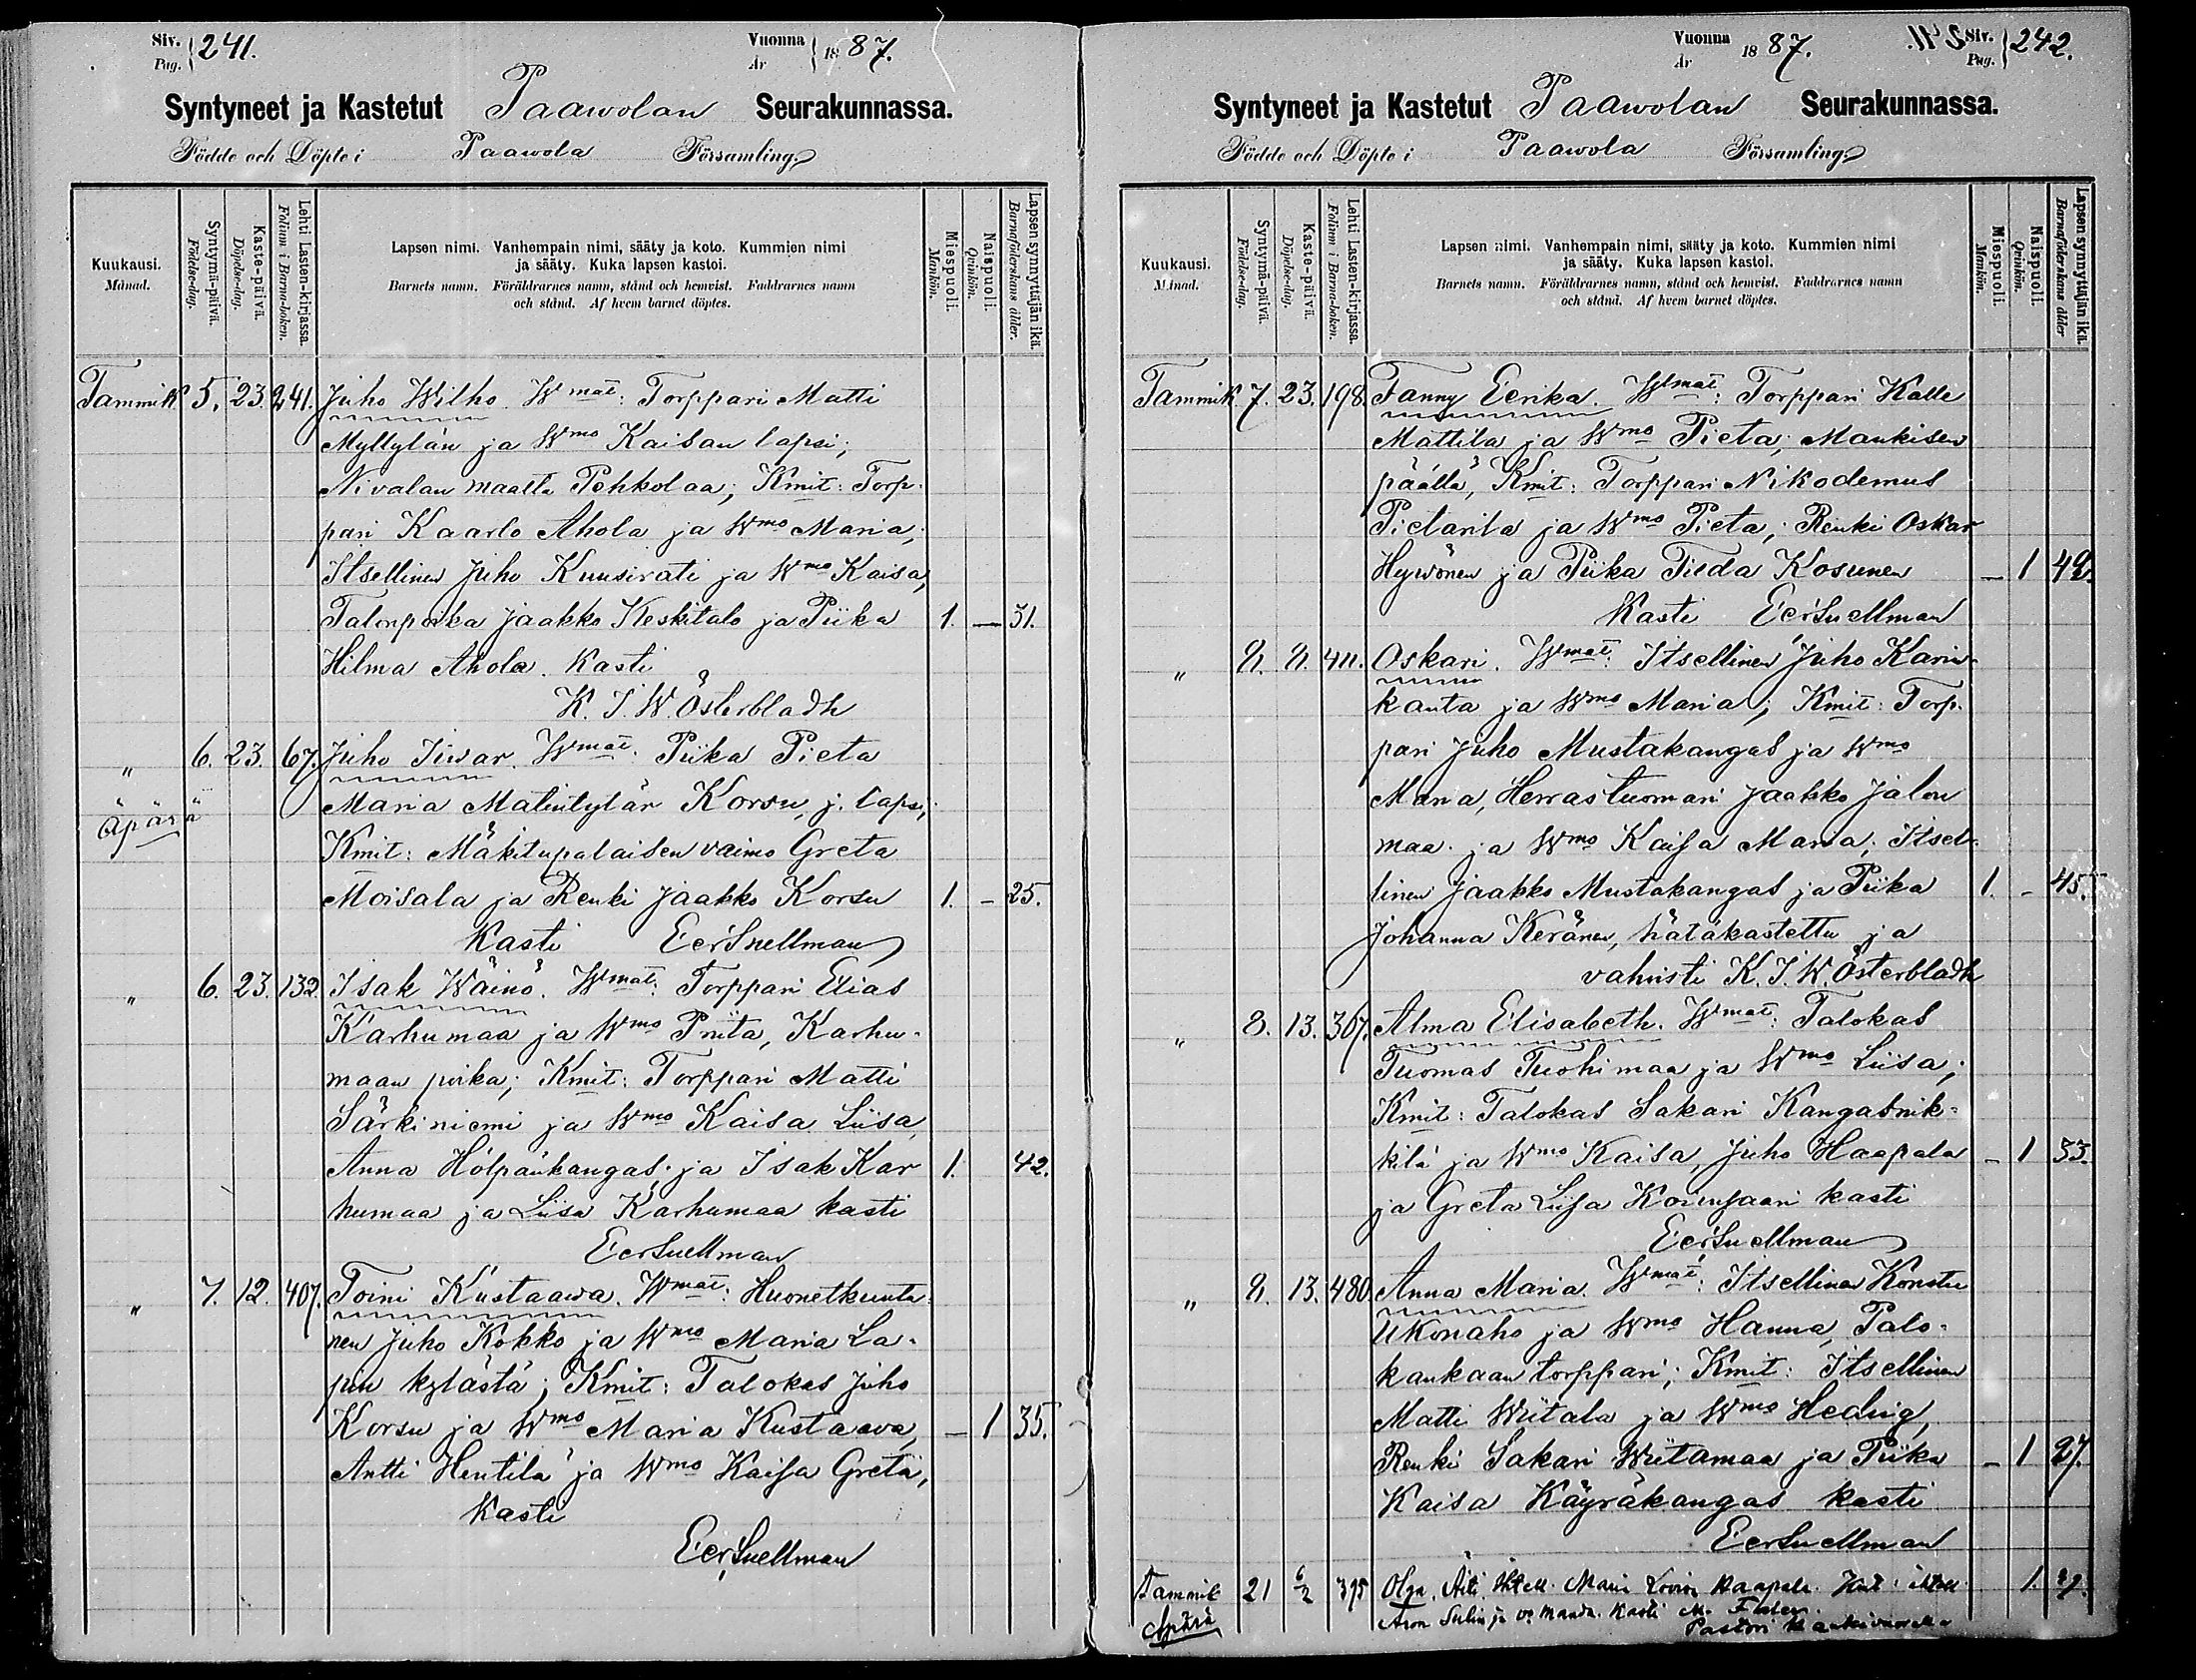 Siv. Pag. 241.
Vuonna År 1887.
Syntyneet ja Kastetut Paawolan Seurakunnassa.
Födde och Döpte i Paawola Församling.
Kuukausi. Månad.
Syntymä-päivä. Födelse-dag.
Kaste-päivä. Döpelse-dag.
Lehti Lasten-kirjassa. Folium i Barna-boken.
Lapsen nimi. Vanhempain nimi, sääty ja koto. Kummien nimi
ja sääty. Kuka lapsen kastoi.
Barnets namn. Föräldrarnes namn, stånd och hemvist. Faddrarnes namn
och stånd. Af hvem barnet döptes.
Miespuoli. Mankön.
Naispuoli. Qvinkön.
Lapsen synnyttäjän ikä. Barnaföderskans ålder.
Tammik 5. 23. 241. Juho Wilho. Wmat: Torppari Matti
Myllylän ja Wmo Kaisan lapsi;
Nivalan maalta Pehkolaa; Kmit: Torp-
pari Kaarlo Ahola ja Wmo Maria;
Itsellinen Juho Kuusirati ja Wmo Kaisa,
Talonpoika Jaakko Keskitalo ja Piika 1. — 31.
Hilma Ahola. Kasti
K. J. W. Österbladh
" 6. 23. 67. Juho Iiwar. Wmat: Piika Pieta
Äpärä Maria Matintytär Korsu, j. lapsi;
Kmit: Mäkitupalaisen vaimo Greta
Moisala ja Renki Jaakko Korsu 1. - 25.
Kasti EerSnellman
" 6. 23. 132. Isak Wäinö. Wmat: Torppari Elias
Karhumaa ja Wmo Priita, Karhu-
maan poika; Kmit: Torppari Matti
Särkiniemi ja Wmo Kaisa Liisa,
Anna Hölpänkangas; ja Isak Kar 1. 42.
humaa ja Liisa Karhumaa kasti
EerSnellman
" 7. 12. 407. Toini Kustaawa. Wmat: Huonetkunta-
nen Juho Kokko ja Wmo Maria La-
pin kylästä; Kmit: Talokas Juho
Korsu ja Wmo Maria Kustaava, — 1 35.
Antti Hentilä ja Wmo Kaisa Greta,
Kasti
EerSnellman
Vuonna År 1887.
Siv. Pag. 242.
Syntyneet ja Kastetut Paawolan Seurakunnassa.
Födde och Döpte i Paawola Församling.
Kuukausi. Månad.
Syntymä-päivä. Födelse-dag.
Kaste-päivä. Döpelse-dag.
Lehti Lasten-kirjassa. Folium i Barna-boken.
Lapsen nimi. Vanhempain nimi, sääty ja koto. Kummien nimi
ja sääty. Kuka lapsen kastoi.
Barnets namn. Föräldrarnes namn, stånd och hemvist. Faddrarnes namn
och stånd. Af hvem barnet döptes.
Miespuoli. Mankön.
Naispuoli. Qvinkön.
Lapsen synnyttäjän ikä. Barnaföderskans ålder
Tammik. 7. 23. 198. Fanny Eerika. Wmat: Torppari Kalle
Mattila ja Wmo Pieta; Mankisen
päältä, Kmit: Torppari Nikodemus
Pietarila ja Wmo Pieta; Renki Oskar
Hywönen ja Piika Tilda Kosunen — 1 42.
Kasti EerSnellman
" 8. 8. 411. Oskari. Wmat: Itsellinen Juho Karin-
kanta ja Wmo Maria; Kmit: Torp-
pari Juho Mustakangas ja Wmo
Maria, Herrastuomari Jaakko Jalon
maa ja Wmo Kaisa Maria; Itsel-
linen Jaakko Mustakangas ja Piika 1. - 45.
Johanna Keränen, hätäkastettu ja
vahvisti K. J. W. Österbladh
" 8. 13. 367. Alma Elisabeth. Wmat: Talokas
Tuomas Tuohimaa ja Wmo Liisa;
Kmit: Talokas Sakari Kangasnik-
kilä ja Wmo Kaisa, Juho Haapala — 1 33.
ja Greta Liisa Korensaari kasti
EerSnellman
" 8. 13. 480. Anna Maria. Wmat: Itsellinen Konstu
Ukonaho ja Wmo Hanna, Palo-
kankaan torppari; Kmit: Itsellinen
Matti Wiitala ja Wmo Hedvig,
Renki Sakari Wiitamaa ja Piika — 1 27.
Kaisa Käyräkangas kasti
EerSnellman
Tammik 21 6/2 395 Olga. Äiti Maria Lovisa Haapala. 1.
Äpärä ja vo Manda. Kasti
Pastori